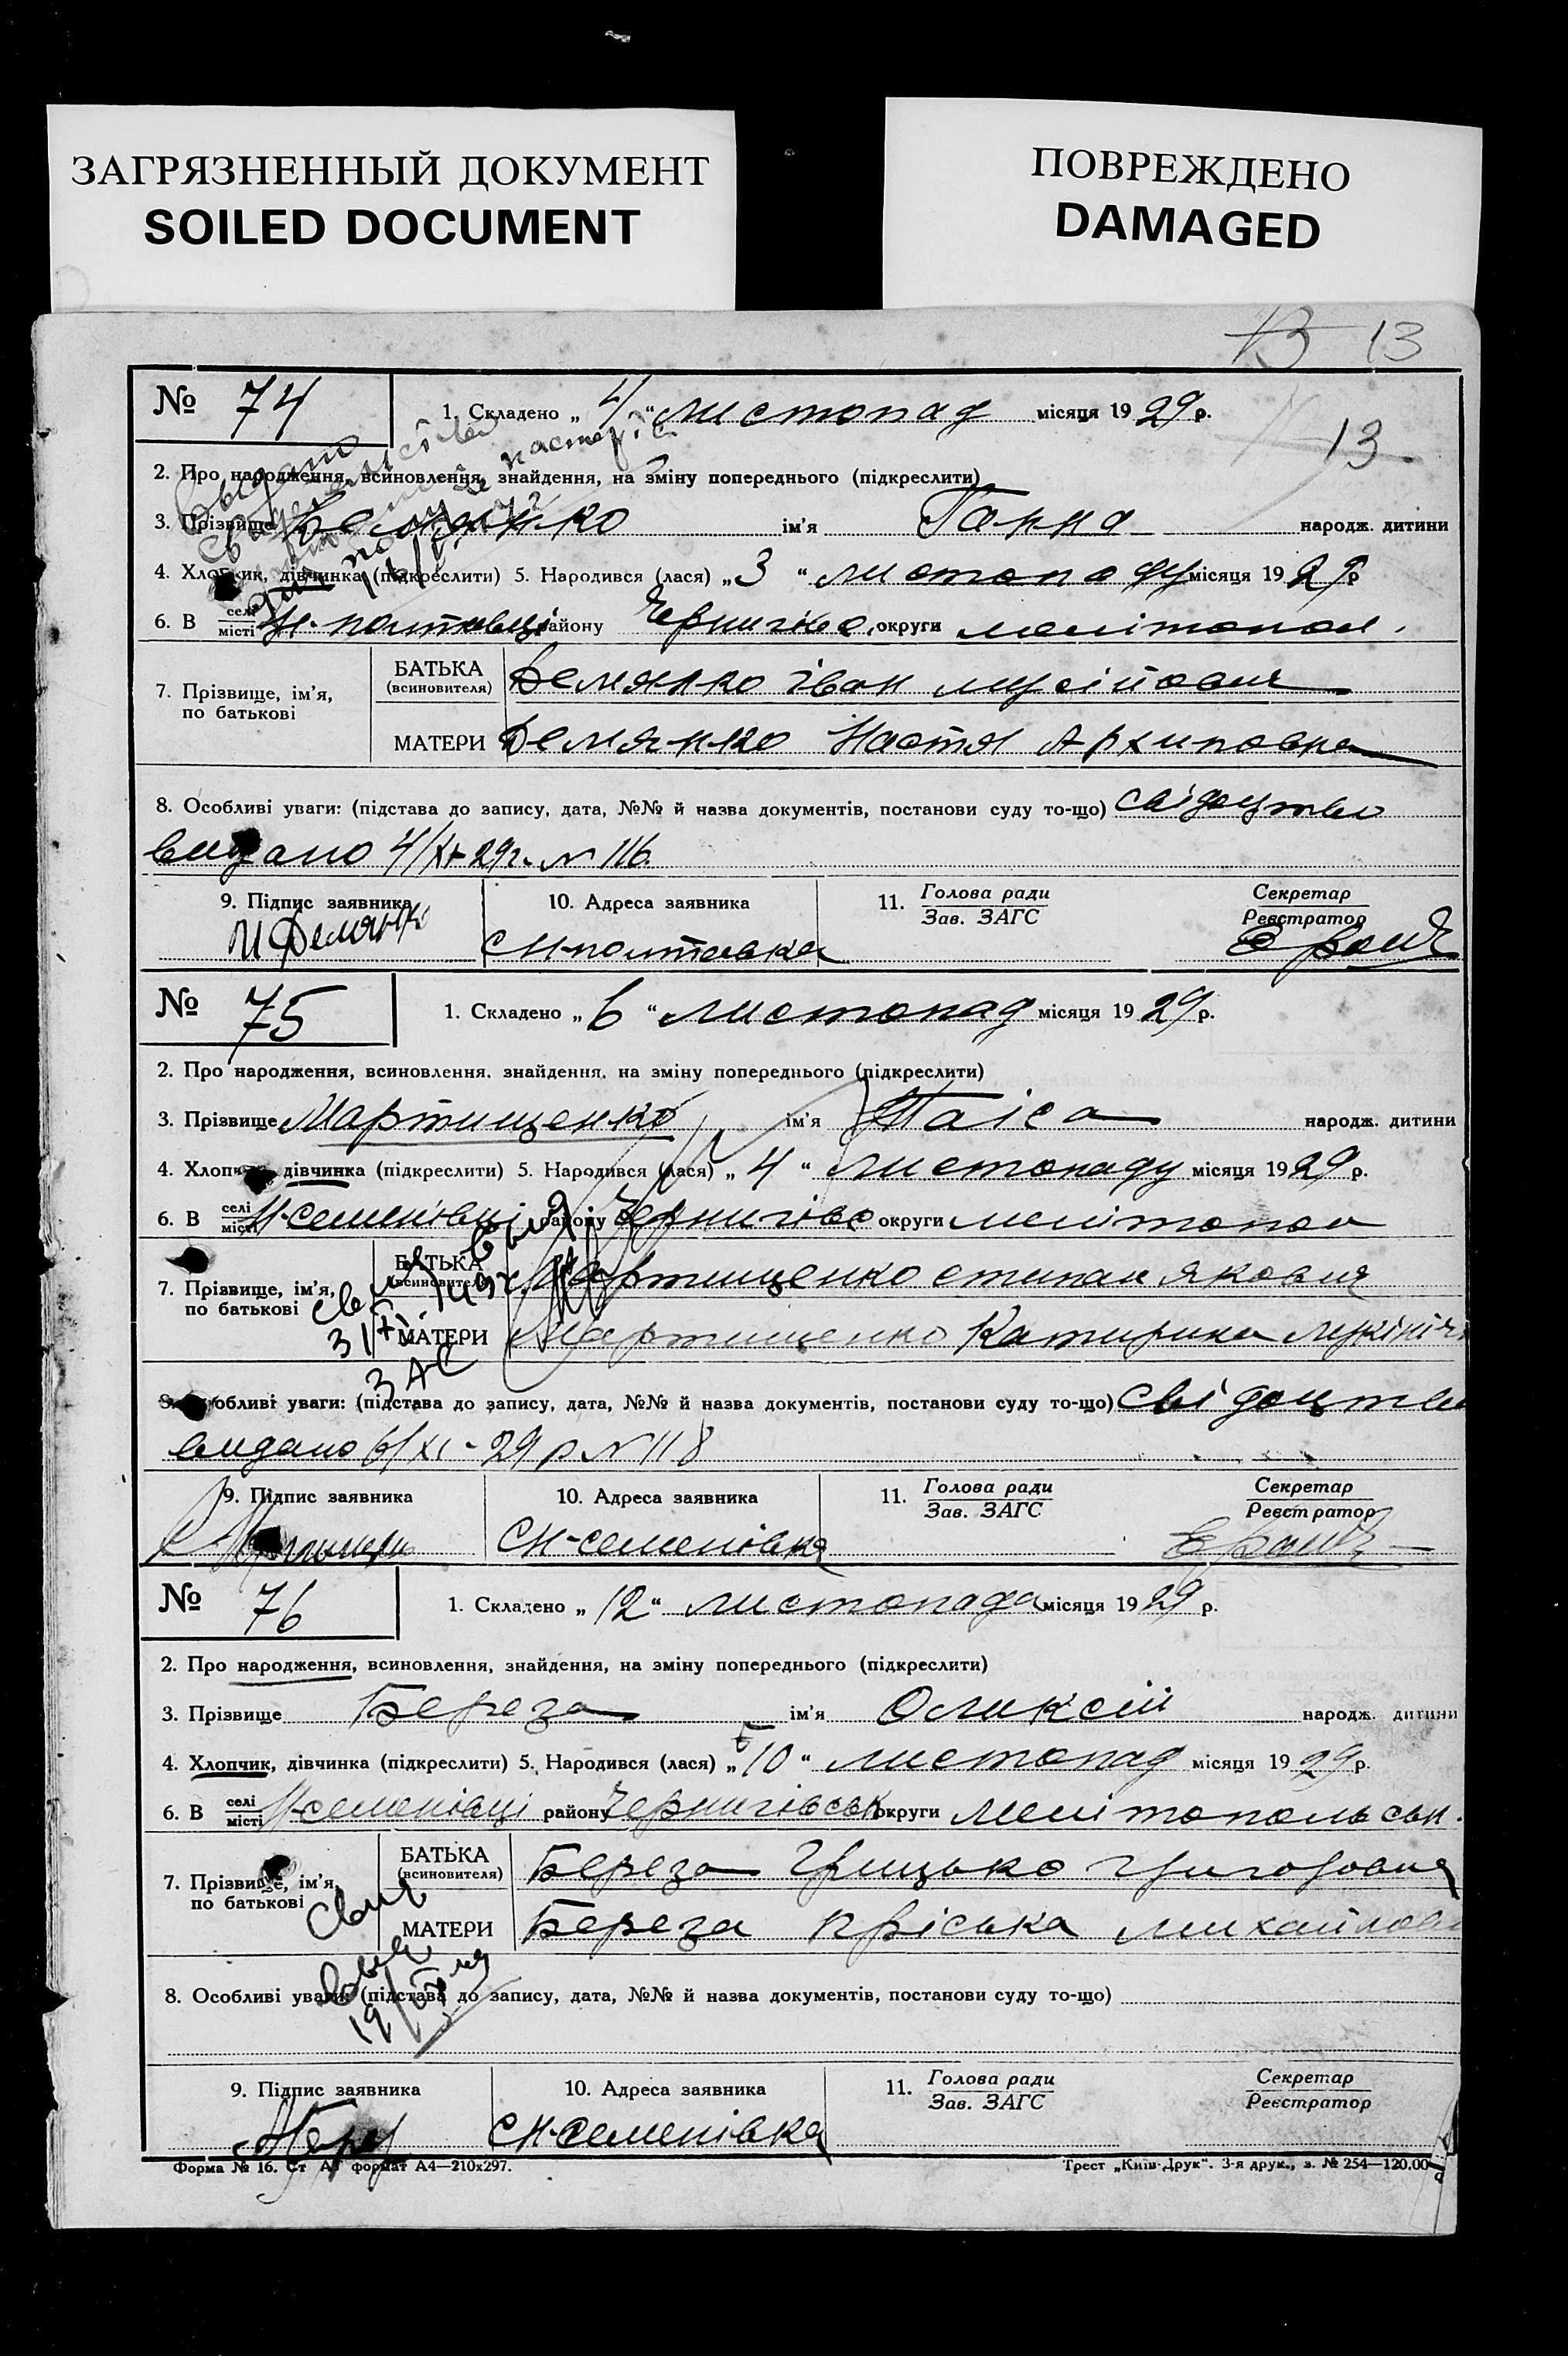 ЗАГРЯЗНЕННЫЙ ДОКУМЕНТ
SOILED DOCUMENT
ПОВРЕЖДЕНО
DAMAGED
13 13
№ 74 1. Складено „ 4 “ листопад місяця 19 29 р.
13
2. Про народження, всиновлення, знайдення, на зміну попереднього (підкреслити)
3. Прізвище Демянко ім'я Ганна народж. дитини
4. Хлопчик, дівчинка (підкреслити) 5. Народився (лася) „ 3 “ листопаду місяця 19 29 р
6. В селі місті Н-полтавці району Чернигівс. округи мелітопол.
7. Прізвище, ім'я, по батькові
БАТЬКА (всиновителя) Демянко іван мусійович
МАТЕРИ Демянко Настя Архиповна
8. Особливі уваги: (підстава до запису, дата, №№ й назва документів, постанови суду то-що) свідоцтво
видано 4/XI-29г. N 116.
9. Підпис заявника 10. Адреса заявника 11. Голова ради Зав. ЗАГС Секретар Реєстратор
И Демянко С Н-полтавка
№ 75 1. Складено „ 6 “ листопад місяця 19 29 р.
2. Про народження, всиновлення, знайдення, на зміну попереднього (підкреслити)
3. Прізвище Мартищенко ім'я Таіса народж. дитини
4. Хлопчик, дівчинка (підкреслити) 5. Народився (лася) „ 4 “ листопаду місяця 19 29 р.
6. В селі місті Н-семенівці району Чернигівс округи мелітопол
7. Прізвище, ім'я, по батькові
БАТЬКА (всиновителя) Мартищенко степан якович
МАТЕРИ Мартищенко Катирина
8. Особливі уваги: (підстава до запису, дата, №№ й назва документів, постанови суду то-що) свідоцтво
видано 6/XI-29 р N 118
9. Підпис заявника 10. Адреса заявника 11. Голова ради Зав. ЗАГС Секретар Реєстратор
С Н-семенівка
№ 76 1. Складено „ 12 “ листопада місяця 19 29 р.
2. Про народження, всиновлення, знайдення, на зміну попереднього (підкреслити)
3. Прізвище Береза ім'я Оликсій народж. дитини
4. Хлопчик, дівчинка (підкреслити) 5. Народився (лася) „ 10 “ листопад місяця 19 29 р.
6. В селі місті Н-семенівці району Чернигівськ округи мелітопольськ.
7. Прізвище, ім'я, по батькові
БАТЬКА (всиновителя) Береза Грицько Григорович
МАТЕРИ Береза пріська михайлов
8. Особливі уваги: (підстава до запису, дата, №№ й назва документів, постанови суду то-що)
9. Підпис заявника 10. Адреса заявника 11. Голова ради Зав. ЗАГС Секретар Реєстратор
С Н-семенівка
Форма № 16. Ст А4 формат А4—210х297. Трест „Київ-Друк“. 3-я друк., з. № 254—120.00